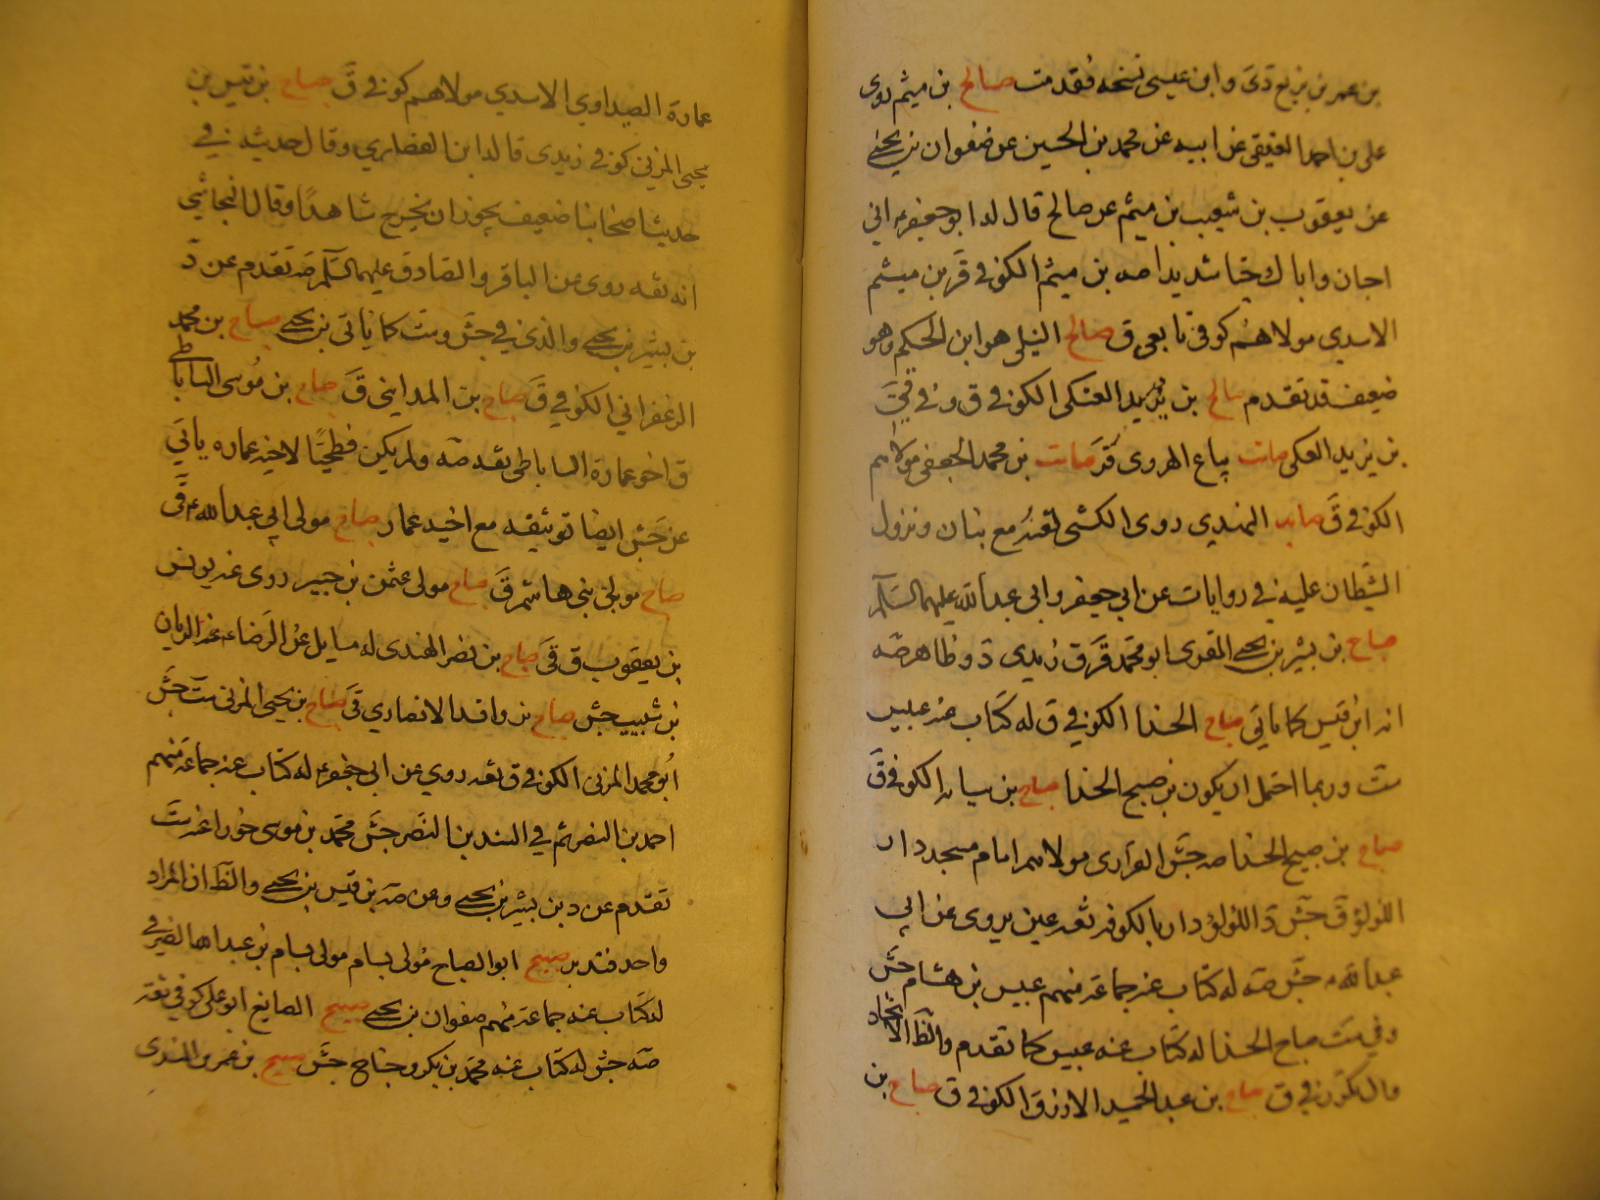 بن عمر بن بزيع دى وابن عيسى نسخه فقدمت صالح بن ميثم روى
على بن احمد العقيقى عن ابيه عن محمد بن الحسين عن صفوان بن يحيى
عن يعقوب بن شعيب بن ميثم عن صالح قال لدا ابو جعفر ع انى
احبك واباك حبا شديدا صه بن ميثم الكوفي قر بن ميثم
الاسدي مولاهم كوفى تابعى ق صالح النيلى هو ابن الحكم وهو
ضعيف قد تقدم صالح بن يزيد العتكى الكوفى ق وفى
بن يزيد العكى صامت بياع الهروى قر صامت بن محمد الجعفى مولاهم
الكوفي ق صايد النهدي روى الكشى لعنه مع بنان ونزول
الشيطان عليه في روايات عن ابي جعفر وابي عبد الله عليهما السلم
صباح بن بشير بن يحيى المقرى ابو محمد قر ق زيدى د وظاهر صه
انه ابن قيس كما ياتي صباح الحذا الكوفي ق له كتاب عنه عبيس
ست وربما احتمل ان يكون بن صبيح الحذا صباح بن سيابه الكوفى ق
صباح بن صبيح الحذا صه جش الفزارى مولاهم امام مسجد دار
اللولؤ ق جش د اللولؤ دار بالكوفه ثقه عين يروى عن ابي
عبد الله ع جش صه له كتاب عنه جماعة منهم عبيس بن هشام جش
وفي ست صباح الحذا له كتاب عنه عبيس كما تقدم والظ الاتحاد
صباح بن عبد الحميد الازرق الكوفي ق صباح بن
عمارة الصيداوي الاسدي مولاهم كوفي ق صباح بن قيس بن
يحيى المزني كوفى زيدى قاله ابن الغضايري وقال حديثه في
حديث اصحابنا ضعيف يجوز ان يخرج شاهدا وقال النجاشي
انه ثقه روى عن الباقر والصادق عليهما السلم صه تقدم عن د
بن بشير بن يحيى والذي في جش وست كما ياتى بن يحيى صباح بن محمد
الزعفراني الكوفي ق صباح بن المداينى ق صباح بن موسى الساباطى
ق اخو عمارة الساباطى ثقه صه ولم يكن فطحيا لاخيه عماره ياتي
عن جش ايضا توثيقه مع اخيه عمار صباح مولى ابي عبد الله ع ق
صباح مولى بني هاشم ق صباح مولى عثمن بن جبير روى عنه يونس
بن يعقوب ق ق صباح بن نصر الهندى له مسايل عن الرضا ع عنه الريان
بن شبيب جش صباح بن واقد الانصاري ق صباح بن يحيى المزنى ست جش
ابو محمد المزني الكوفي ق ثقه روي عن ابي جعفر ع له كتاب عنه جماعة منهم
احمد بن النضر ثم في السند بن النضر جش محمد بن موسى خورا عنه ست
تقدم عن د بن بشير بن يحيى وعن صه بن قيس بن يحيى والظ ان المراد
واحد فتدبر صبيح ابو الصباح مولى بسام مولى بسام بن عبد الله الصيرفى
له كتاب عنه جماعة منهم صفوان بن يحيى صبيح الصايغ ابو على كوفي ثقه
صه جش له كتاب عنه محمد بن بكر وجناح جش صبيح بن عمر